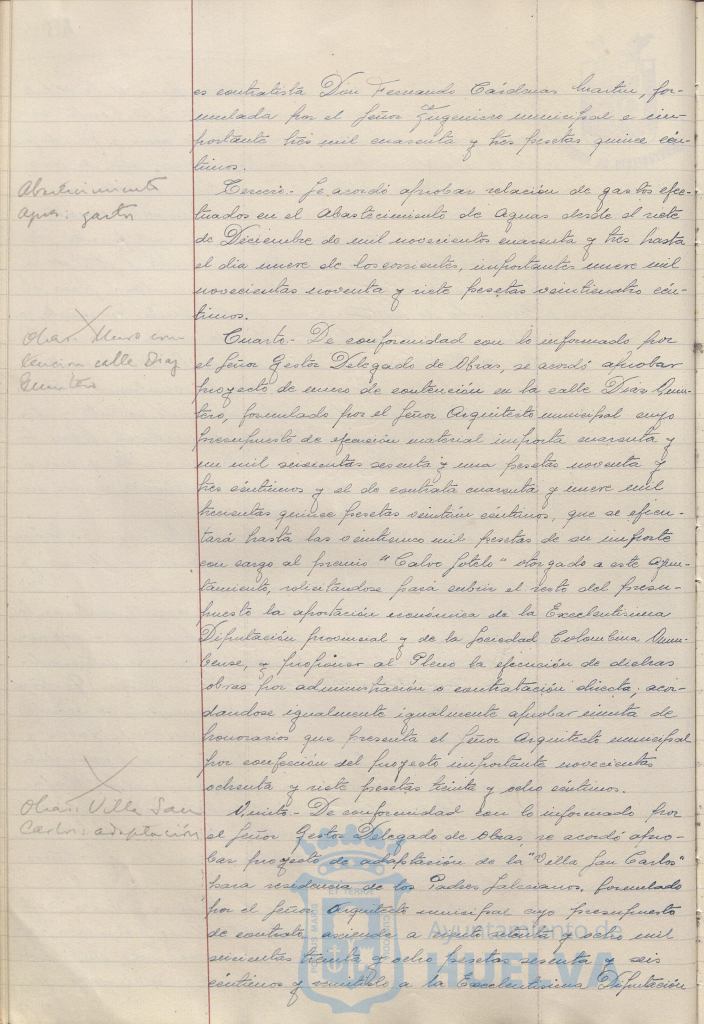 es contratista Don Fernando Cárdenas Martin, for-
mulada por el Señor Ingeniero municipal e im-
portante tres mil cuarenta y tres pesetas quince cén-
timos.
Abastecimiento
aguas: gastos
Tercero.- Se acordó aprobar relación de gastos efec-
tuados en el Abastecimiento de Aguas desde el siete
de Diciembre de mil novecientos cuarenta y tres hasta
el dia nueve de los corrientes, importantes nueve mil
novecientas noventa y siete pesetas veinticuatro cén-
timos.
Obras: Muro con
tencion calle Diaz
Quintero
Cuarto.- De conformidad con lo informado por
el Señor Gestor Delegado de Obras, se acordó aprobar
proyecto de muro de contención en la calle Diaz Quin-
tero, formulado por el Señor Arquitecto municipal cuyo
presupuesto de ejecución material importa cuarenta y
un mil seiscientas sesenta y una pesetas noventa y
tres céntimos y el de contrata cuarenta y nueve mil
trescientas quince pesetas veintiún céntimos, que se ejecu-
tará hasta las veinticinco mil pesetas de su importe
con cargo al premio "Calvo Sotelo" otorgado a este Ayun-
tamiento, solicitandose para cubrir el resto del presu-
puesto la aportación económica de la Excelentisima
Diputación provincial y de la Sociedad Colombina Onu-
bense, y proponer al Pleno la ejecución de dichas
obras por administración o contratación directa; acor-
dandose igualmente igualmente aprobar minuta de
honorarios que presenta el Señor Arquitecto municipal
por confección del proyecto importante novecientas
ochenta y siete pesetas treinta y ocho céntimos.
Obras: Villa San
Carlos: adaptación
Quinto.- De conformidad con lo informado por
el Señor Gestor Delegado de Obras, se acordó apro-
bar proyecto de adaptación de la "Villa San Carlos"
para residencia de los Padres Salesianos, formulado
por el Señor Arquitecto municipal cuyo presupuesto
de contrata asciende a ciento setenta y ocho mil
seiscientas treinta y ocho pesetas sesenta y seis
céntimos y remitirlo a la Excelentisima Diputación
Ayuntamiento de
HUELVA